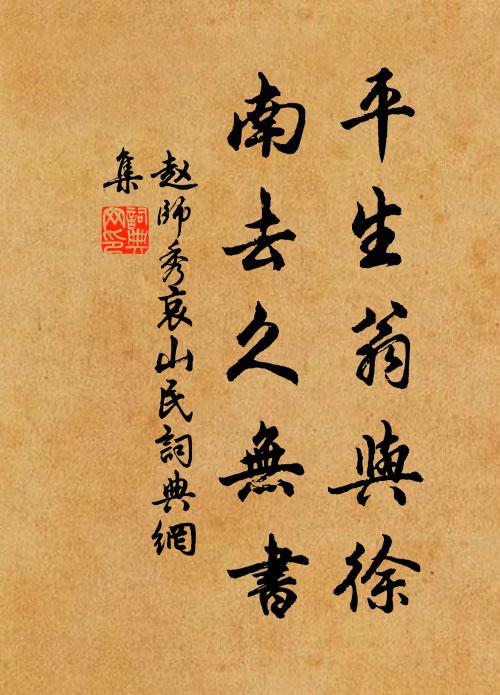 平生翁與徐
南去久無書
赵師秀哀山民詞典網
集
詞典
网印